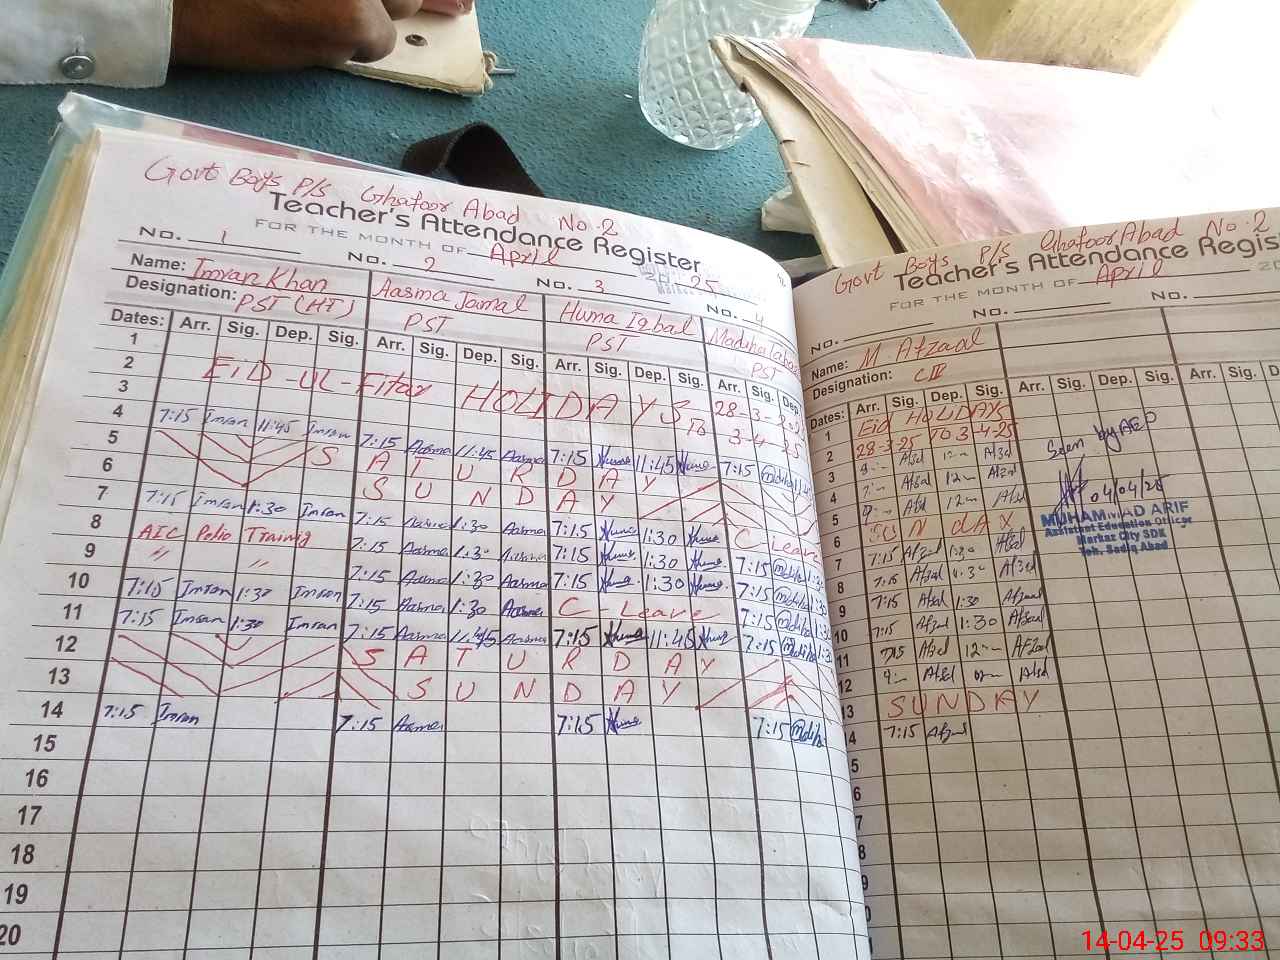 Govt Boys P/S Ghafoor Abad No.2
Teacher's Attendance Register
FOR THE MONTH OF April 25
No. 1 No. 2 No. 3 No. 4
Name: Imran Khan Aasma Jamal Huma Iqbal Madiha
Designation: PST (HT) PST PST PST
Dates: Arr. Sig. Dep. Sig. Arr. Sig. Dep. Sig. Arr. Sig. Dep. Sig. Arr. Sig. Dep.
1
2 EID-UL-Fitar HOLIDAYS 28-3-2025
3 To 3-4-25
4 7:15 Imran 11:45 Imran 7:15 Aasma 11:45 Aasma 7:15 Huma 11:45 Huma 7:15 Madiha 11:45
5 SATURDAY
6 SUNDAY
7 7:15 Imran 1:30 Imran 7:15 Aasma 1:30 Aasma 7:15 Huma 1:30 Huma C Leave
8 AIC Polio Training 7:15 Aasma 1:30 Aasma 7:15 Huma 1:30 Huma 7:15 Madiha 1:30
9 " " 7:15 Aasma 1:30 Aasma 7:15 Huma 1:30 Huma 7:15 Madiha 1:30
10 7:15 Imran 1:30 Imran 7:15 Aasma 1:30 Aasma C-Leave 7:15 Madiha
11 7:15 Imran 1:30 Imran 7:15 Aasma 11:45 Aasma 7:15 Huma 11:45 Huma 7:15 Madiha
12 SATURDAY
13 SUNDAY
14 7:15 Imran 7:15 Aasma 7:15 Huma 7:15 Madiha
15
16
17
18
19
20
Govt Boys P/S Ghafoor Abad No.2
Teacher's Attendance Regis
FOR THE MONTH OF April
No. No. No.
Name: M. Afzaal
Designation: C IV
Dates: Arr. Sig. Dep. Sig. Arr. Sig. Dep. Sig. Arr. Sig. D
1 Eid HOLIDAYS
2 28-3-25 TO 3-4-25
3
4
5
6 SUNDAY
7 7:15 Afzal 1:30 Afzal
8 7:15 Afzal
9 7:15 Afzal 1:30 Afzaal
10 7:15 Afzal 1:30 Afzaal
11 7:15 Afzal 12 Afzaal
12
13 SUNDAY
14 7:15 Afzal
Seen by AEO
04/04/25
MUHAMMAD ARIF
Assistant Education Officer
Markaz City SDK
Teh. Sadiq Abad
14-04-25 09:33